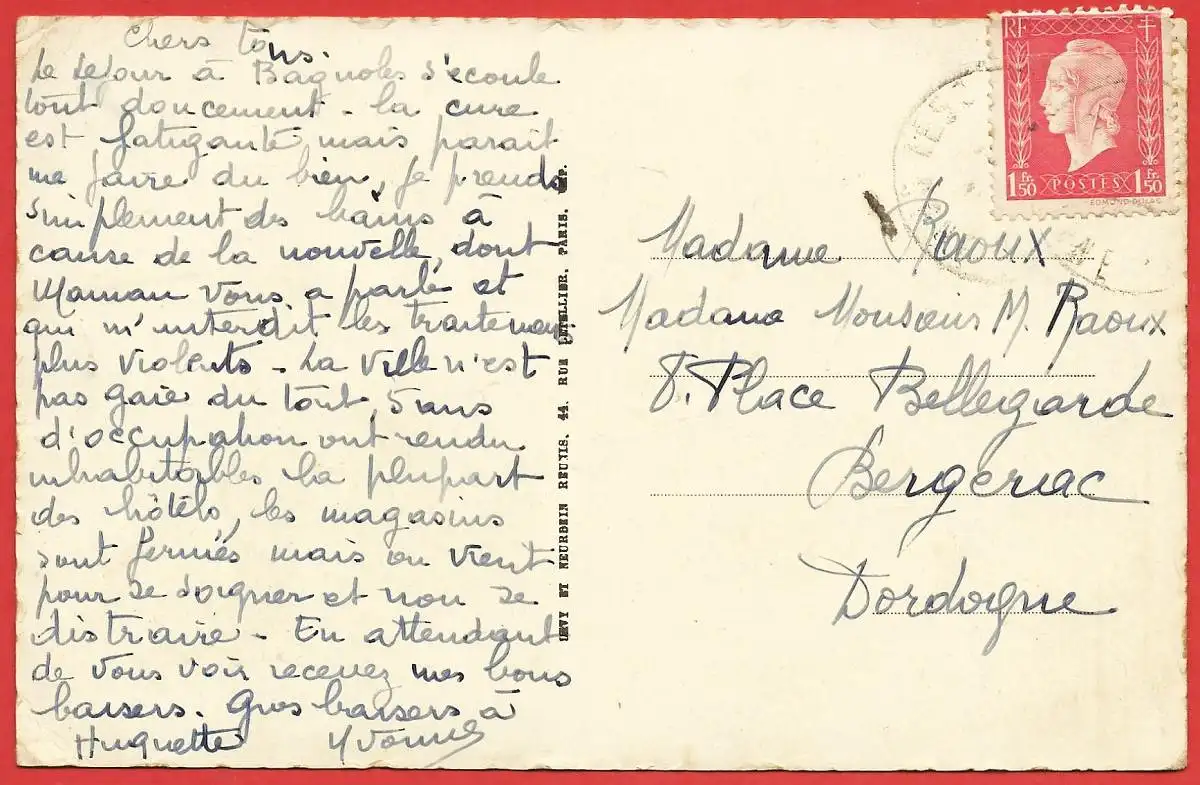 Chers tous.
Le séjour à Bagnoles s'écoule
tout doucement - la cure
est fatigante, mais parait
me faire du bien, je prends
simplement des bains à
cause de la nouvelle, dont
Maman vous a parlé et
qui m'interdit les traitements
plus violents - La ville n'est
pas gaie du tout, 5 ans
d'occupation ont rendu
inhabitables la plupart
des hôtels, les magasins
sont fermés mais on vient
pour se soigner et non se
distraire - En attendant
de vous voir recevez mes bons
baisers. Gros baisers à
Huguette Yvonne
LEVY ET NEURDEIN REUNIS, 44, RUE LETELLIER, PARIS. IMP.
RF
1Fr.50 POSTES 1Fr.50
EDMOND DULAC
Madame Raoux
Madame Monsieur M. Raoux
8. Place Bellegarde
Bergerac
Dordogne